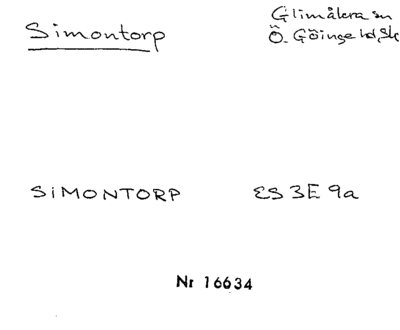 Simontorp
Glimåkra sn
Ö. Göinge hd, Sk
SiMONTORP ES 3E 9a
Nr 16634